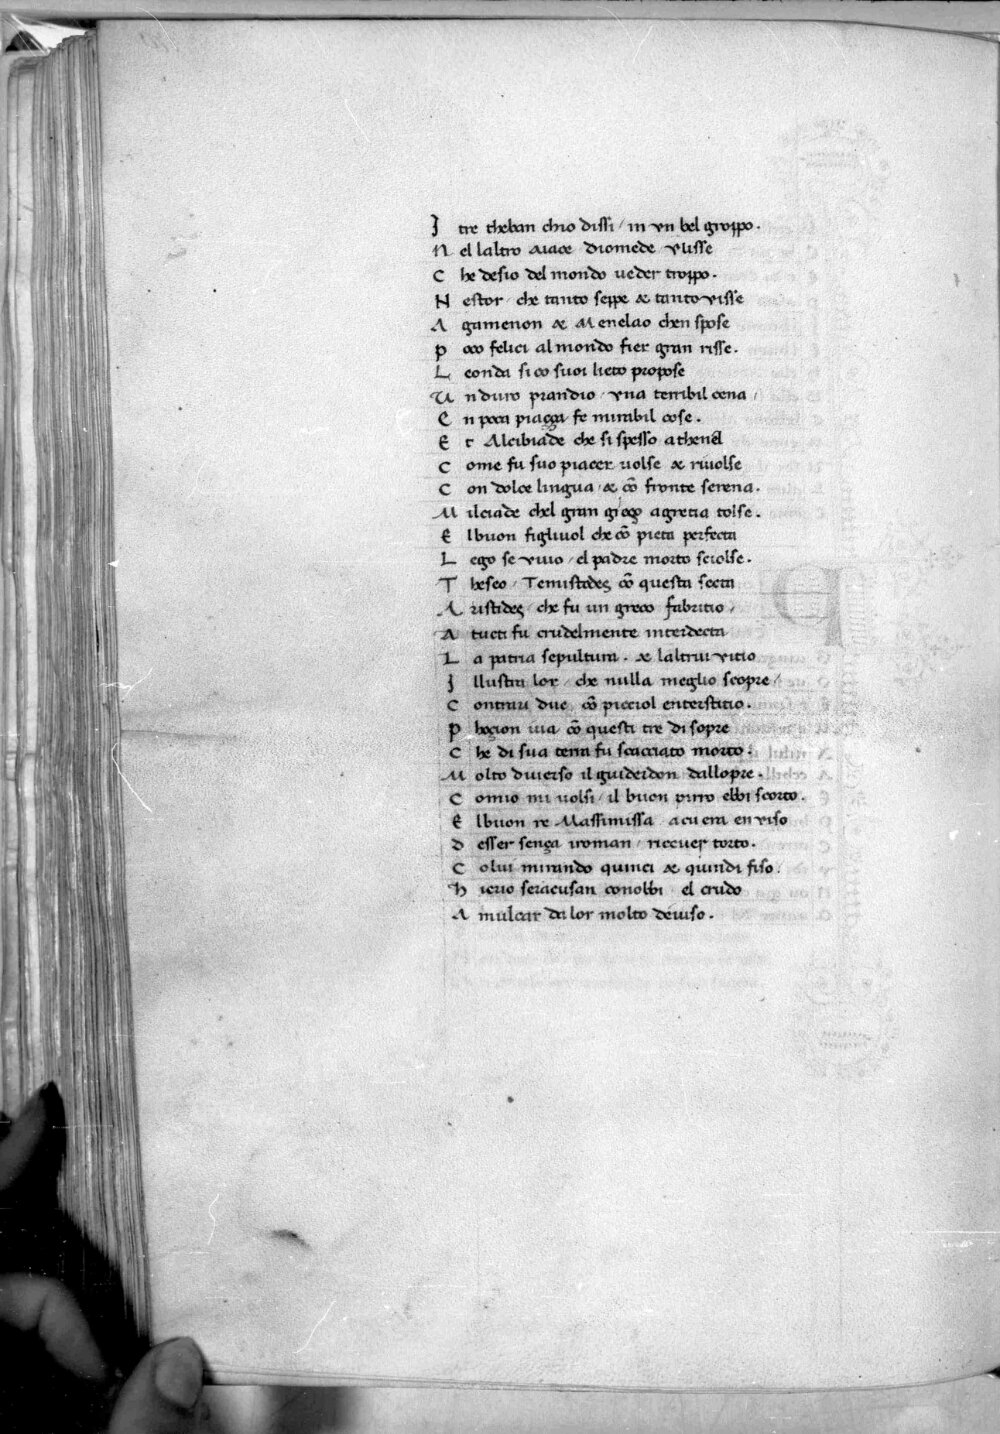 I tre theban chio dissi / in vn bel groppo.
N el laltro aiace diomede / vlisse
C he desio del mondo ueder troppo.
N estor / che tanto seppe & tanto visse
A gamenon & Menelao chen spose
P oco felici al mondo fier gran risse.
L eonda si co suoi lieto propose
U n duro prandio / vna terribil cena /
E n poca piagga fe mirabil cose.
E t Alcibiade che si spesso athena
C ome fu suo piacer uolse & riuolse
C on dolce lingua / & cō fronte serena.
M ilciade chel gran giogo agrecia tolse.
E l buon figliuol che cō pieta perfecta
L ego se viuo / el padre morto sciolse.
T heseo / Temistedes cō questa secta
A ristides che fu un greco fabritio /
A tucti fu crudelmente interdecta
L a patria sepultura. & laltrui vitio
I llustra lor / che nulla meglio scopre /
C ontrari due cō picciol enterstitio.
P hocion uia cō questi tre di sopre
C he di sua terra fu scacciato morto.
M olto diuerso il guiderdon dallopre.
C omio mi uolsi / il buon pirro ebbi scorto.
E l buon re Massinissa / a cu era en viso
D esser senza iroman / riceuer torto.
C olui mirando quinci & quindi fiso.
H ierio seracusan conobbi / el crudo
A milcar da lor molto deuiso.